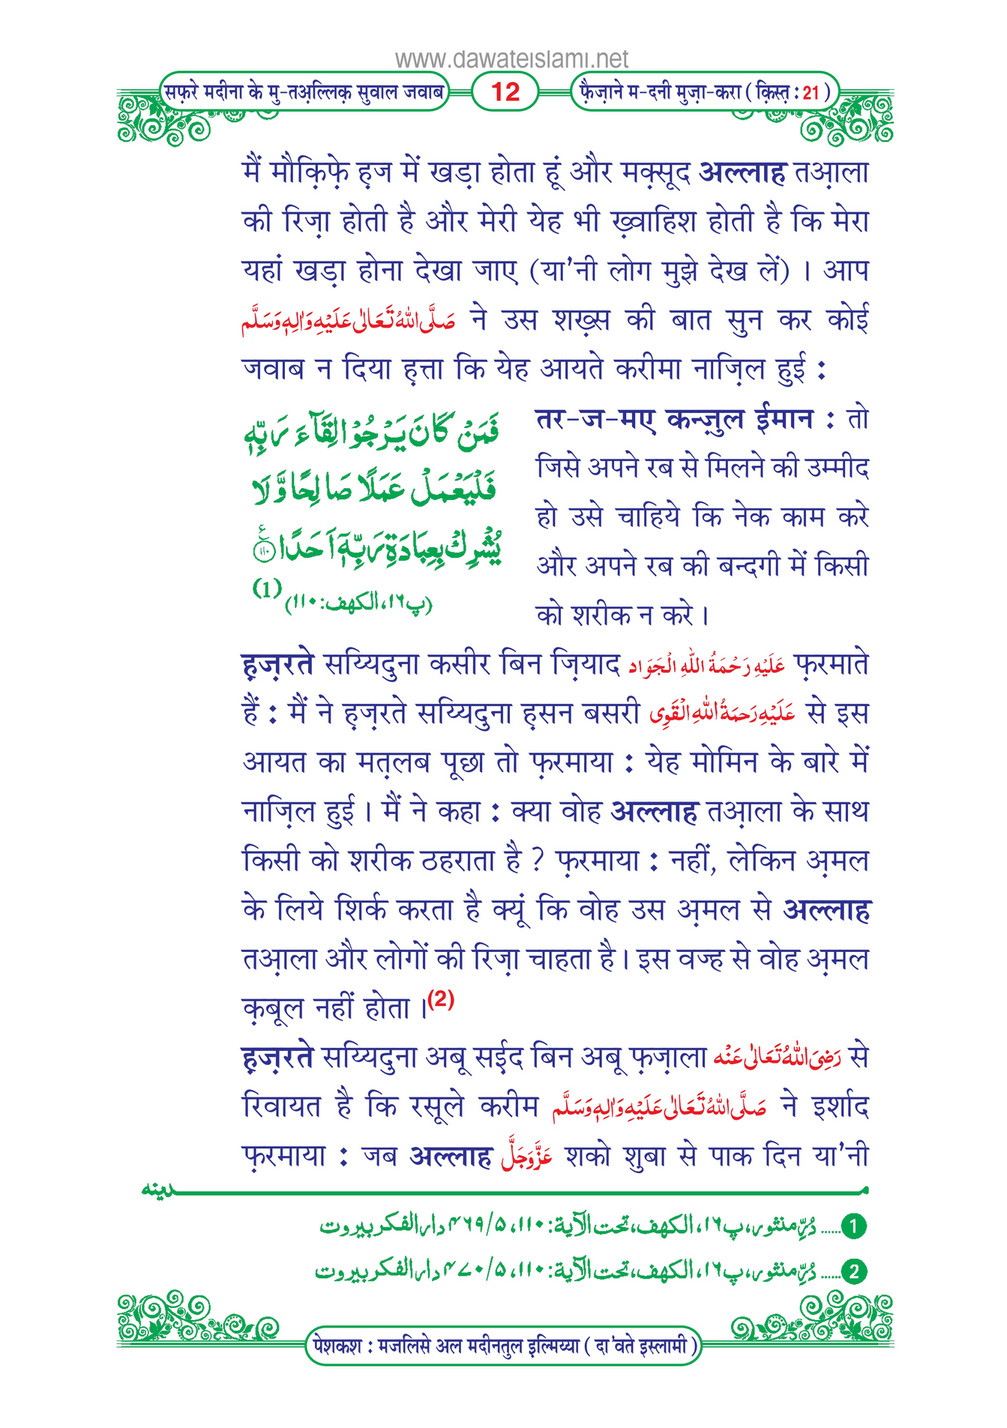 www.dawateislami.net
सफ़रे मदीना के मु-तअ़ल्लिक़ सुवाल जवाब
12
फ़ैज़ाने म-दनी मुज़ा-करा ( क़िस्त़ : 21 )
मैं मौक़िफ़े ह़ज में खड़ा होता हूं और मक़्सूद अल्लाह तआ़ला
की रिज़ा होती है और मेरी येह भी ख़्वाहिश होती है कि मेरा
यहां खड़ा होना देखा जाए (या'नी लोग मुझे देख लें) । आप
صَلَّى اللهُ تَعَالٰى عَلَيْهِ وَاٰلِهٖ وَسَلَّم ने उस शख़्स की बात सुन कर कोई
जवाब न दिया ह़त्ता कि येह आयते करीमा नाज़िल हुई :
فَمَنْ كَانَ يَرْجُوْا لِقَآءَ رَبِّهٖ
فَلْيَعْمَلْ عَمَلًا صَالِحًا وَّ لَا
يُشْرِكْ بِعِبَادَةِ رَبِّهٖٓ اَحَدًا ۧ۝۱۱۰
(پ۱۶، الكهف: ۱۱۰) (1)
तर-ज-मए कन्ज़ुल ईमान : तो
जिसे अपने रब से मिलने की उम्मीद
हो उसे चाहिये कि नेक काम करे
और अपने रब की बन्दगी में किसी
को शरीक न करे ।
ह़ज़रते सय्यिदुना कसीर बिन ज़ियाद عَلَيْهِ رَحْمَةُ اللهِ الْجَوَاد फ़रमाते
हैं : मैं ने ह़ज़रते सय्यिदुना ह़सन बसरी عَلَيْهِ رَحمَةُ اللهِ الْقَوِى से इस
आयत का मत़लब पूछा तो फ़रमाया : येह मोमिन के बारे में
नाज़िल हुई । मैं ने कहा : क्या वोह अल्लाह तआ़ला के साथ
किसी को शरीक ठहराता है ? फ़रमाया : नहीं, लेकिन अ़मल
के लिये शिर्क करता है क्यूं कि वोह उस अ़मल से अल्लाह
तआ़ला और लोगों की रिज़ा चाहता है । इस वज्ह से वोह अ़मल
क़बूल नहीं होता ।(2)
ह़ज़रते सय्यिदुना अबू सई़द बिन अबू फ़ज़ाला رَضِىَ اللهُ تَعَالٰى عَنْه से
रिवायत है कि रसूले करीम صَلَّى اللهُ تَعَالٰى عَلَيْهِ وَاٰلِهٖ وَسَلَّم ने इर्शाद
फ़रमाया : जब अल्लाह عَزَّوَجَلَّ शको शुबा से पाक दिन या'नी
مدينه
1 ...... دُرِّ منثور، پ۱۶، الكهف، تحت الآية: ۱۱۰، ۵/۴۶۹ دار الفكر بيروت
2 ...... دُرِّ منثور، پ۱۶، الكهف، تحت الآية: ۱۱۰، ۵/۴۷۰ دار الفكر بيروت
पेशकश : मजलिसे अल मदीनतुल इ़ल्मिय्या ( दा'वते इस्लामी )